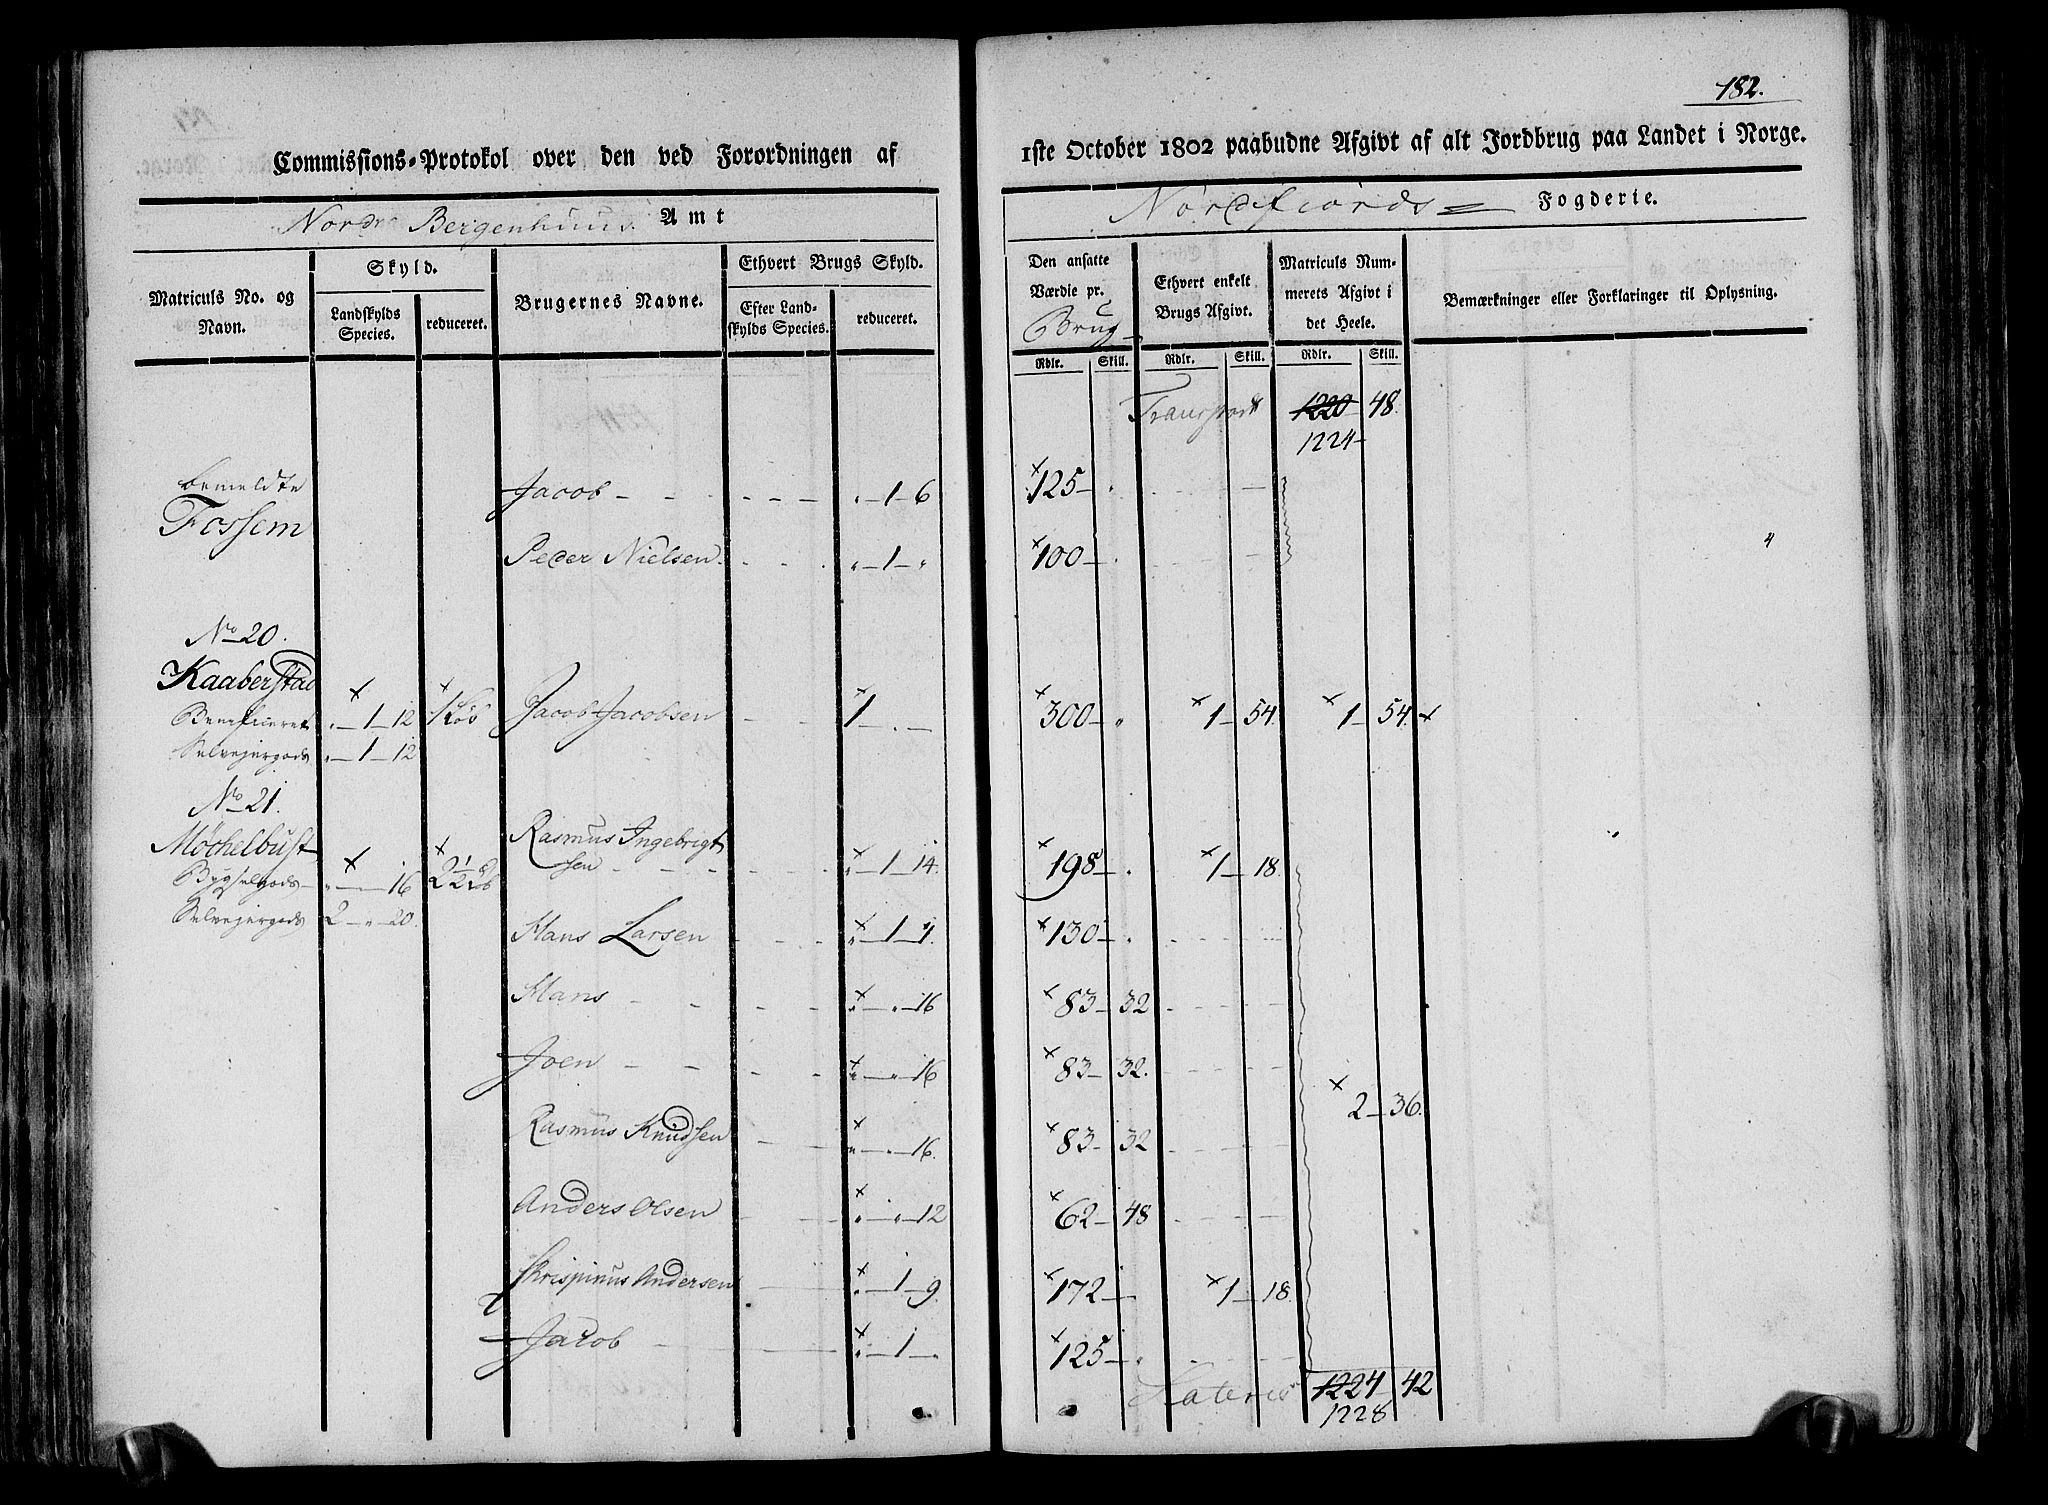 182.
Commissions-Protokol over den ved Forordningen af
1ste October 1802 paabudne Afgivt af alt Jordbrug paa Landet i Norge.
Nordre Bergenhuus Amt
Nordfiords Fogderie.
Matriculs No. og Navn.
Skyld.
Landskylds Species.
reduceret.
Brugernes Navne.
Ethvert Brugs Skyld.
Efter Landskylds Species.
reduceret.
Den ansatte Værdie pr. Brug
Ethvert enkelt Brugs Afgivt.
Matriculs Nummerets Afgivt i det Heele.
Bemærkninger eller Forklaringer til Oplysning.
Rdlr. Skill. Rdlr. Skill. Rdlr. Skill.
Transport 1220 48.
1224
bemeldte
Fossem
Jacob - - - - - „ - 1 - 6 × 125 - „
Peder Nielsen. - - - „ - 1 - „ × 100 - „
No 20.
Kaaberstad
Beneficeret „ - 1 - 12 Jacob Jacobsen - - × 1 - „ - × 300 - „ × 1 - 54. × 1 - 54. ×
Selvejergods „ - 1 - 12
No 21.
Møchelbust
Bygselgods - „ - „ - 16
Selvejergods 2 - „ - 20.
Rasmus Ingebrigt
sen - - - - × „ - 1 - 14. × 198 - „ × 1 - 18.
Hans Larsen - - - × „ - 1 - 1. × 130 - „
Hans - - - - × „ - „ - 16 × 83 - 32
Joen - - - - × „ - „ - 16 × 83 - 32.
× 2 - 36.
Rasmus Knudsen - - × „ - „ - 16. × 83 - 32
Anders Olsen - - - × „ - „ - 12 × 62 - 48
Chrispinus Andersen - × „ - 1 - 9. × 172 - × 1 - 18.
Jacob - - - × „ - 1 - „ × 125 - „
Lateris 1224 42
1228